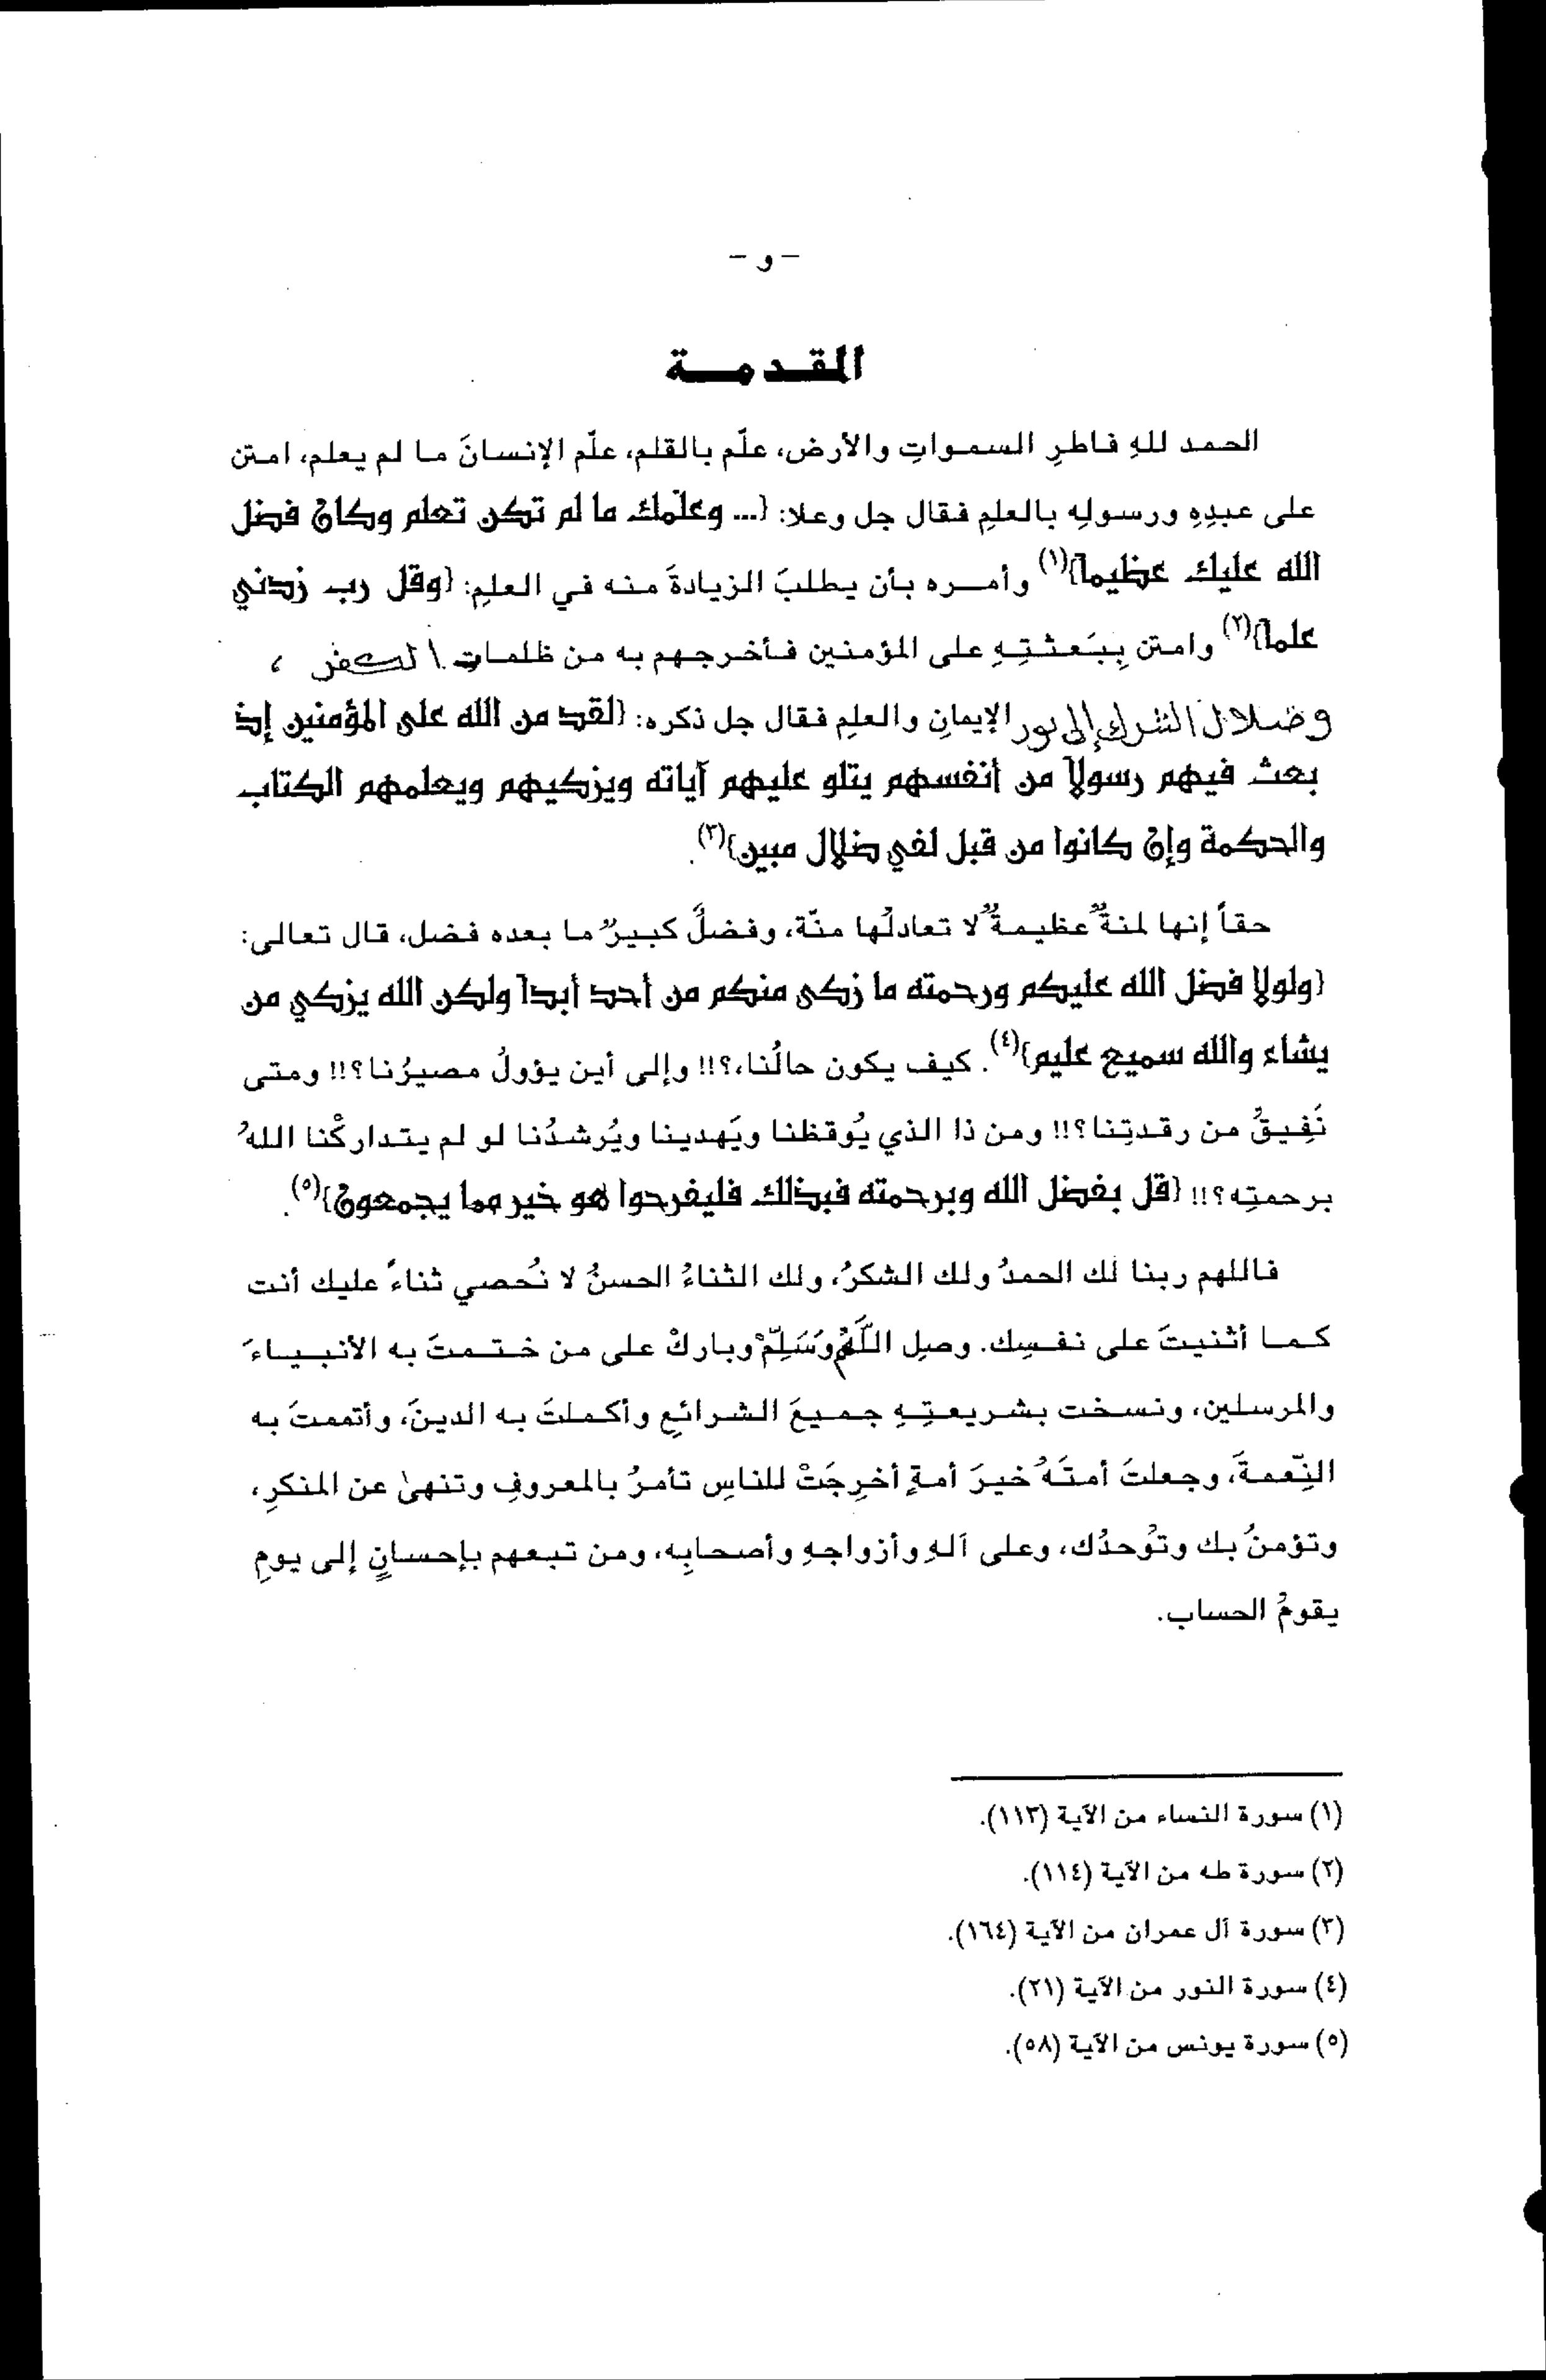 - و -
المقدمة
الحمد للهِ فاطرِ السمواتِ والأرض، علّم بالقلم، علّم الإنسانَ ما لم يعلم، امتن
على عبدِهِ ورسولِه بالعلمِ فقال جل وعلا: {... وعلّمك ما لم تكن تعلم وكان فضل
الله عليك عظيماً}(١) وأمره بأن يطلبَ الزيادةَ منه في العلمِ: {وقل رب زدني
علماً}(٢) وامتن بِبَعثتِهِ على المؤمنين فأخرجهم به من ظلمات الكفر ،
وضلال الشرك إلى نور الإيمانِ والعلمِ فقال جل ذكره: {لقد من الله على المؤمنين إذ
بعث فيهم رسولاً من أنفسهم يتلو عليهم آياته ويزكيهم ويعلمهم الكتاب
والحكمة وإن كانوا من قبل لفي ضلال مبين}(٣).
حقاً إنها لمنةٌ عظيمةٌ لا تعادلُها منّة، وفضلٌ كبيرٌ ما بعده فضل، قال تعالى:
{ولولا فضل الله عليكم ورحمته ما زكى منكم من أحد أبداً ولكن الله يزكي من
يشاء والله سميع عليم}(٤). كيف يكون حالُنا،؟!! وإلى أين يؤولُ مصيرُنا؟!! ومتى
نَفِيقُ من رقدتِنا؟!! ومن ذا الذي يُوقظنا ويَهدينا ويُرشدُنا لو لم يتداركْنا اللهُ
برحمتِه؟!! {قل بفضل الله وبرحمته فبذلك فليفرحوا هو خير مما يجمعون}(٥).
فاللهم ربنا لك الحمدُ ولك الشكرُ، ولك الثناءُ الحسنُ لا نُحصي ثناءً عليك أنت
كما أثنيتَ على نفسِك. وصلِ اللَّهُمَّ وَسَلِّمْ وباركْ على من ختمتَ به الأنبياءَ
والمرسلين، ونسخت بشريعتِهِ جميعَ الشرائعِ وأكملتَ به الدينَ، وأتممتَ به
النِّعمةَ، وجعلتَ أمتَهُ خيرَ أمةٍ أخرِجَتْ للناسِ تأمرُ بالمعروفِ وتنهىٰ عن المنكرِ،
وتؤمنُ بك وتُوحدُك، وعلى آلهِ وأزواجهِ وأصحابِه، ومن تبعهم بإحسانٍ إلى يومِ
يقومُ الحساب.
(١) سورة النساء من الآية (١١٣).
(٢) سورة طه من الآية (١١٤).
(٣) سورة آل عمران من الآية (١٦٤).
(٤) سورة النور من الآية (٢١).
(٥) سورة يونس من الآية (٥٨).